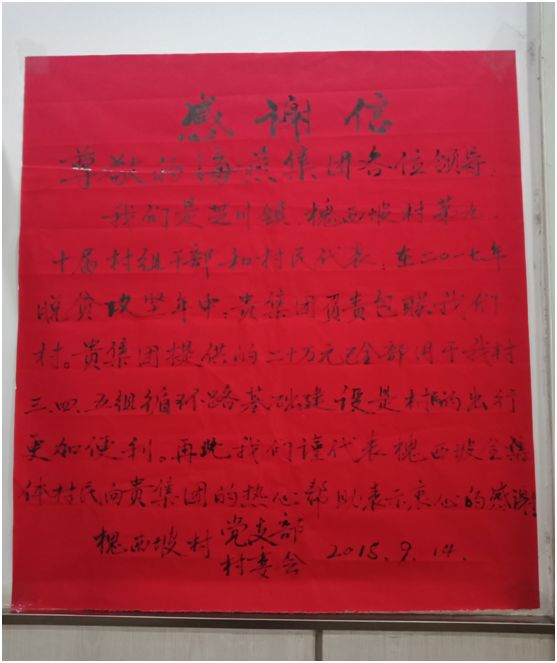 感谢信
尊敬的海燕集团各位领导:
我们是芝川镇、槐西坡村第九、
十届村组干部和村民代表,在二〇一七年
脱贫攻坚年中,贵集团负责包联我们
村。贵集团提供的二十万元已全部用于我村
三、四、五组循环路基础建设是村的出行
更加便利。再此我们谨代表槐西坡全集
体村民向贵集团的热心帮助表示衷心的感谢!
槐西坡村 党支部
村委会 2018.9.14.